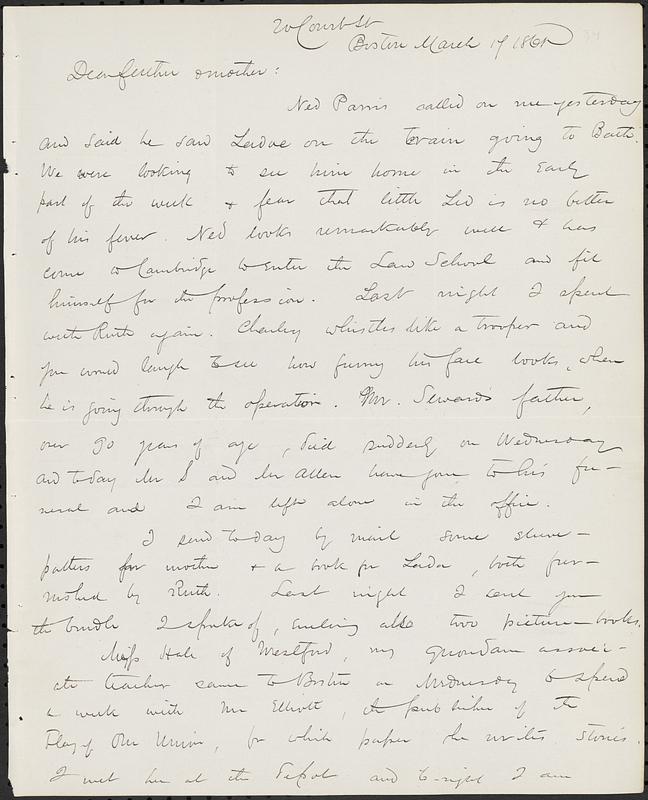 20 Court St
Boston March 17 1861
Dear father & mother:
Ned Parris called on me yesterday
and said he saw on the train going to Bath.
We were looking to see him home in the Early
part of the week & fear that little is no better
of his fever. Ned looks remarkably well & has
come to Cambridge to enter the Law School and fit
himself for the profession. Last night I spent
with Ruth again. Charley whistles like a trooper and
you would laugh to see how funny his face looks, when
he is going through the operation. Mr. Seward's father,
over 90 years of age, died suddenly on Wednesday
and today Mr S and Mr Allen have gone to his fu-
neral and I am left alone in the office.
I send today by mail some
patters for mother & a book for , both fur-
nished by Ruth. Last night I sent you
the bundle I spoke of, also two picture-books.
Miss Hale of Westford, my quondam associ-
ate teacher came to Boston on Wednesday to spend
a week with Mr Elliott, the publisher of the
Flag of Our Union, for which paper she writes stories.
I met her at the depot and to-night I am